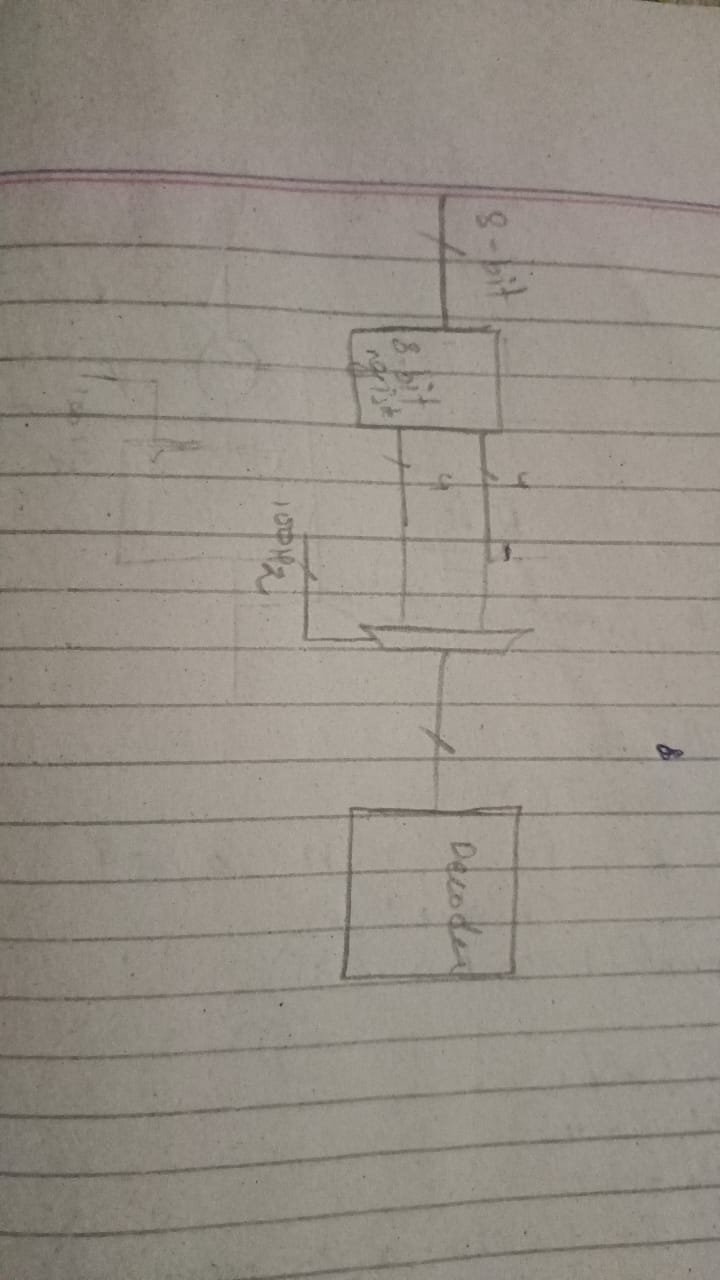 8-bit
8-bit
regist
4
4
100Hz
8
Decoder